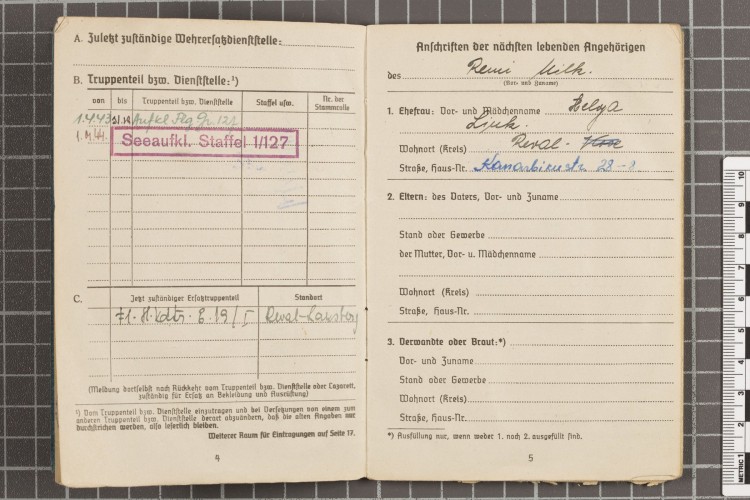 A. Zuletzt zuständige Wehrersatzdienststelle:
B. Truppenteil bzw. Dienststelle:¹)
von bis Truppenteil bzw. Dienststelle Staffel usw. Nr. der Stammrolle
1.4.43 Aufkl. Flg. Gr. 127
Seeaufkl. Staffel 1/127
C. Jetzt zuständiger Ersatztruppenteil Standort
Reval-
(Meldung dortselbst nach Rückkehr vom Truppenteil bzw. Dienststelle oder Lazarett,
zuständig für Ersatz an Bekleidung und Ausrüstung)
¹) Vom Truppenteil bzw. Dienststelle einzutragen und bei Versetzungen von einem zum
anderen Truppenteil bzw. Dienststelle derart abzuändern, daß die alten Angaben nur
durchstrichen werden, also leserlich bleiben.
Weiterer Raum für Eintragungen auf Seite 17.
4
Anschriften der nächsten lebenden Angehörigen
des Remi Milk.
(Vor- und Zuname)
1. Ehefrau: Vor- und Mädchenname Helga
Wohnort (Kreis) Reval.
Straße, Haus-Nr. 28-
2. Eltern: des Vaters, Vor- und Zuname
Stand oder Gewerbe
der Mutter, Vor- u. Mädchenname
Wohnort (Kreis)
Straße, Haus-Nr.
3. Verwandte oder Braut:*)
Vor- und Zuname
Stand oder Gewerbe
Wohnort (Kreis)
Straße, Haus-Nr.
*) Ausfüllung nur, wenn weder 1. noch 2. ausgefüllt sind.
5